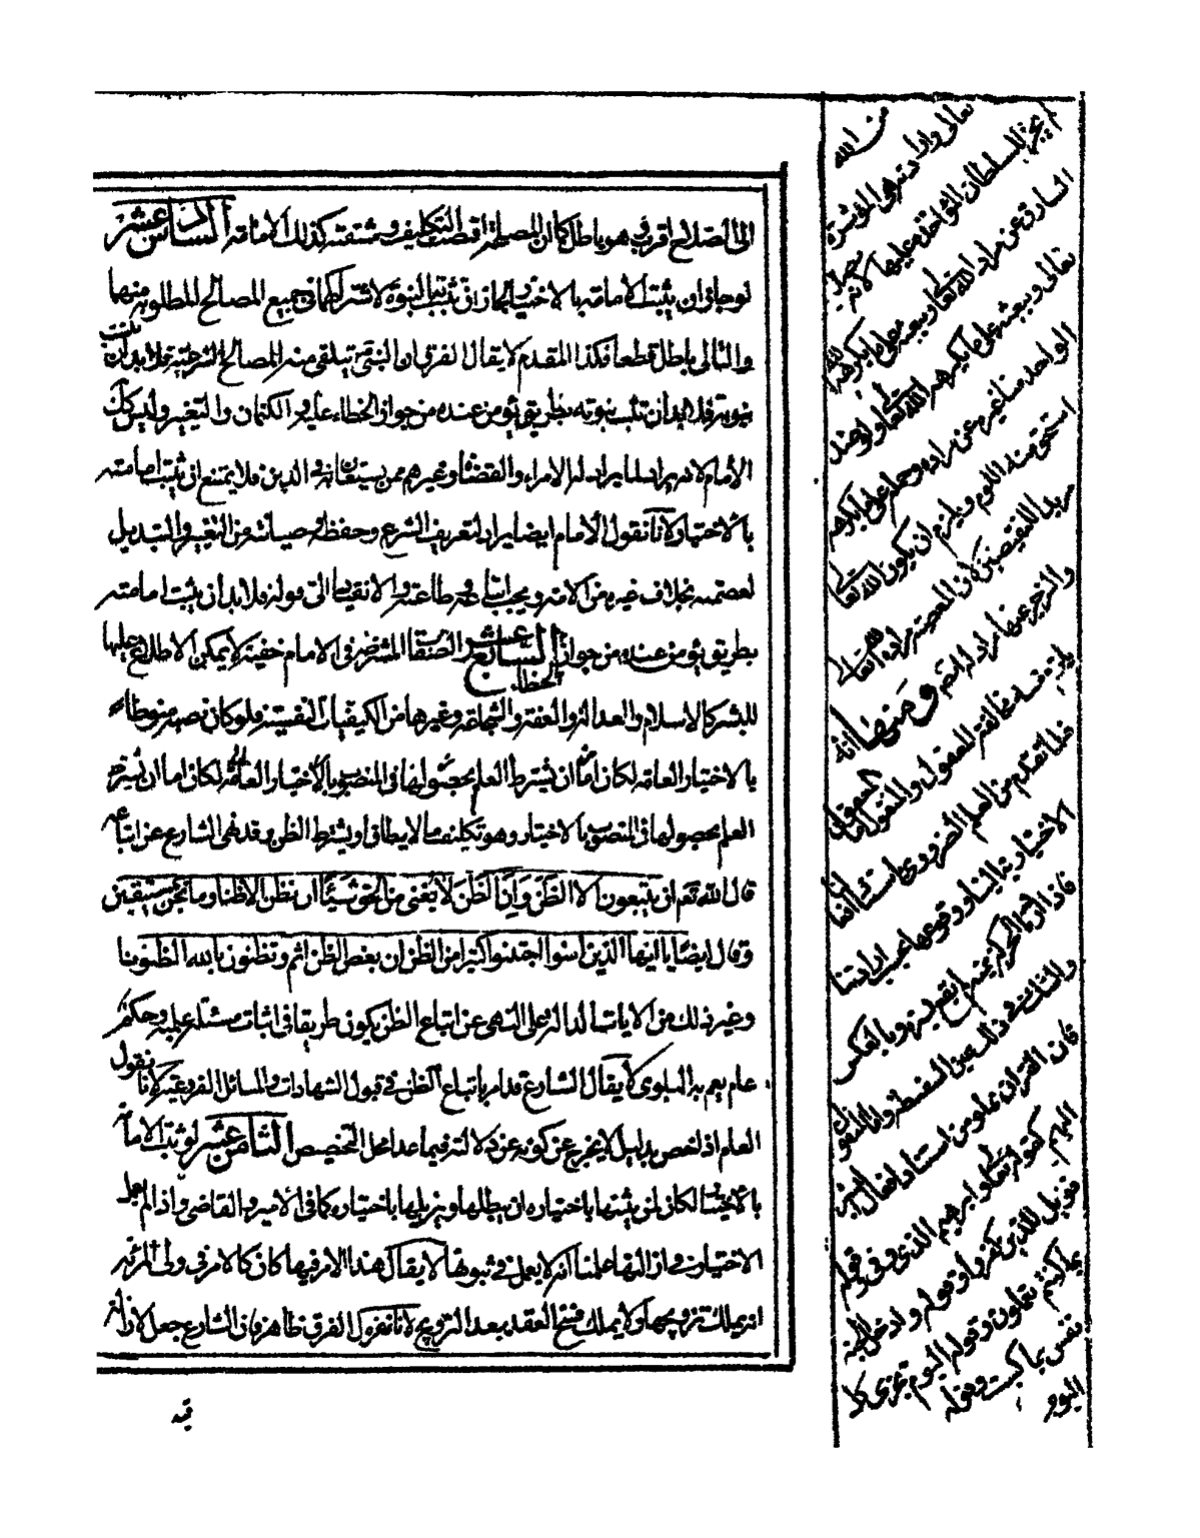 الى الصلاح اقرب وهو باطل كما ان المصلحة اقتضت التكليف ومشقته كذلك الامامة السادس عشر
لو جاز ان يثبت الامامة بالاختيار لجاز ان تثبت النبوة لاشتراكهما في جميع المصالح المطلوبة منهما
والتالى باطل قطعا فكذا المقدم لا يقال الفرق ان النبي يتلقى منه المصالح الشرعية فلا بد ان تثبت
نبوته فلا بد ان تثبت نبوته بطريق يؤمن عنده من جواز الخطاء عليه و الكتمان والتغيير وليس كك
الامام لانه يراد لما يراد له الامراء والقضاة وغيرهم ممن يستعان به في الدين فلا يمتنع ان يثبت امامته
بالاختيار لانا نقول الامام ايضا يراد لتعريف الشرع وحفظه وصيانته من التغيير والتبديل
لعصمته بخلاف غيره من الامة ويجب طاعته والانقياد الى قوله فلا بد ان يثبت امامته
بطريق يؤمن عنده من جواز الخطاء السابع عشر الصفات المشترطة في الامام خفية لا يمكن الاطلاع عليها
للبشر كالاسلام والعدالة والعفة والشجاعة وغيرها من الكيفيات النفسية فلو كان نصبه منوطا
بالاختيار العامة لكان اما ان يشترط العلم بحصولها في المنصوب بالاختيار العامة لكان اما ان يشترط
العلم بحصولها في المنصوب بالاختيار وهو تكليف ما لا يطاق او يشترط الظن وقد نهى الشارع عن اتباعه
قال الله تعم ان يتبعون الا الظن وان الظن لا يغنى من الحق شيئا ان نظن الا ظنا وما نحن بمستيقنين
وقال ايضا يا ايها الذين امنوا اجتنبوا كثيرا من الظن ان بعض الظن اثم وتظنون بالله الظنونا
وغير ذلك من الايات الدالة على النهى عن اتباع الظن يكون طريقا في اثبات مسئلة علمية وحكم
عام يعم به البلوى لا يقال الشارع قد امر باتباع الظن في قبول الشهادات والمسائل الفرعية لانا نقول
العام اذا خص بدليل لا يخرج عن كونه عن دلالته فيما عدا محل التخصيص الثامن عشر لو ثبت الامامة
بالاختيار لكان لمن يثبتها باختياره ان يبطلها ويزيلها باختياره كما في الامير والقاضى واذا لم يعمل
الاختيار في ازالتها علمنا انه لا يعمل في ثبوتها لا يقال هذا الامر فيها كان كالامر في ولى المرئة
انه يملك تزويجها ولا يملك فسخ العقد بعد التزويج لانا نقول الفرق ظاهر فان الشارع جعل لازالة
قيد
من الله
تعالى واذا
لم يجز للسلطان المؤاخذة عليها لانه
السارق عن مراد الله تعا ويبعثه على ما يكرهه الله
تعالى ويبعثه على ما يكرهه الله تعا ولو صد
الواحد منا غيره عن مراده وحمله على ما يكرهه
استحق منه اللوم ويلزم ان يكون الله تعا
مريدا للنقيضين لان المعصية مراده الله تعالى
والزجر عنها مراد له ايضا ومنها انه
يلزم منه مخالفة المعقول والمنقول اما المعقول
فلما تقدم من العلم الضرورى باستناد افعالنا
الاختيارية الينا ووقوعها بحسب ارادتنا
فاذا اردنا الحركة يمنة لم يقع يسرة وبالعكس
والشك في ذلك عين السفسطة واما المنقول
فان القران مملو من استناد افعال البشر
اليهم كقوله تعا وابراهيم الذى وفى وقوله
فويل للذين كفروا وقوله وادخلوا الجنة
بما كنتم تعملون وقوله اليوم تجزى كل
نفس بما كسبت وقوله
اليوم